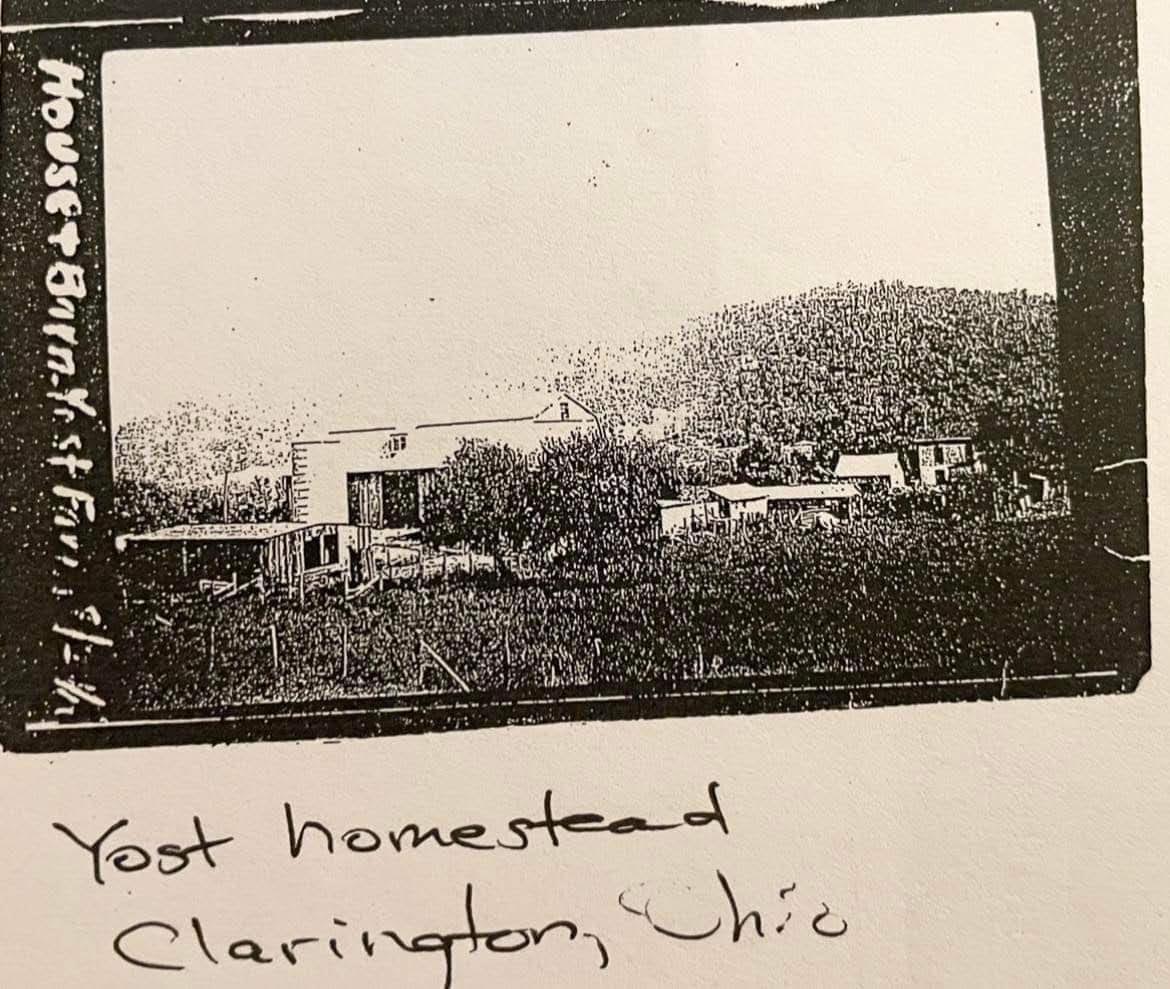 House + Barn - Yost Farm
Yost homestead
Clarington, Ohio